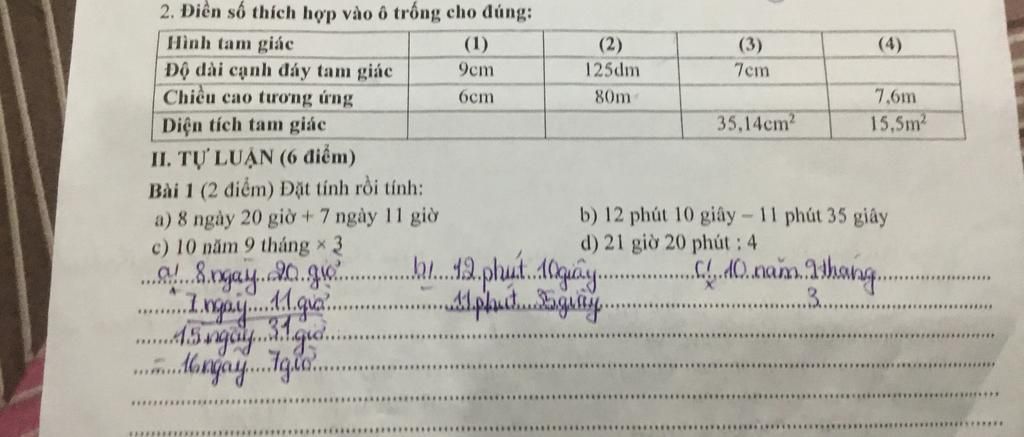 2. Điền số thích hợp vào ô trống cho đúng:
Hình tam giác (1) (2) (3) (4)
Độ dài cạnh đáy tam giác 9cm 125dm 7cm
Chiều cao tương ứng 6cm 80m 7,6m
Diện tích tam giác 35,14cm² 15,5m²
II. TỰ LUẬN (6 điểm)
Bài 1 (2 điểm) Đặt tính rồi tính:
a) 8 ngày 20 giờ + 7 ngày 11 giờ b) 12 phút 10 giây – 11 phút 35 giây
c) 10 năm 9 tháng × 3 d) 21 giờ 20 phút : 4
a/ 8 ngày 20 giờ b/ 12 phút 10 giây c/ 10 năm 9 tháng
+ 7 ngày 11 giờ – 11 phút 35 giây × 3
15 ngày 31 giờ
= 16 ngày 7 giờ